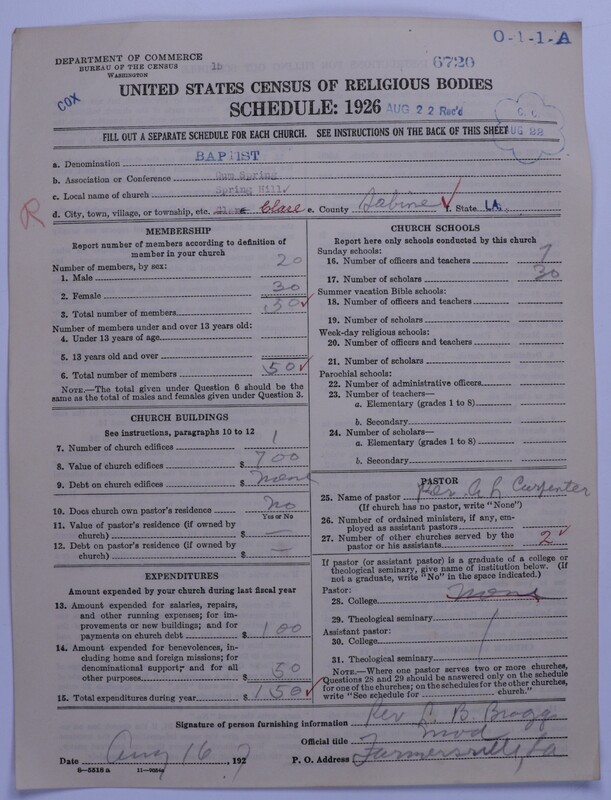 O-1-1-A
DEPARTMENT OF COMMERCE
BUREAU OF THE CENSUS
WASHINGTON
15
6720
COX
UNITED STATES CENSUS OF RELIGIOUS BODIES
SCHEDULE: 1926
AUG 22 Rec'd
FILL OUT A SEPARATE SCHEDULE FOR EACH CHURCH. SEE INSTRUCTIONS ON THE BACK OF THIS SHEET
AUG 22
a. Denomination BAPTIST
b. Association or Conference Gum Spring
c. Local name of church Spring Hill
R
d. City, town, village, or township, etc. Clare e. County Sabine f. State LA.
MEMBERSHIP
Report number of members according to definition of
member in your church
Number of members, by sex:
1. Male 20
2. Female 30
3. Total number of members 50
Number of members under and over 13 years old:
4. Under 13 years of age
5. 13 years old and over
6. Total number of members 50
NOTE.—The total given under Question 6 should be the
same as the total of males and females given under Question 3.
CHURCH BUILDINGS
See instructions, paragraphs 10 to 12
7. Number of church edifices 1
8. Value of church edifices $ 700
9. Debt on church edifices $ None
10. Does church own pastor's residence? No
Yes or No
11. Value of pastor's residence (if owned by
church) $ —
12. Debt on pastor's residence (if owned by
church) $ —
EXPENDITURES
Amount expended by your church during last fiscal year
13. Amount expended for salaries, repairs,
and other running expenses; for im-
provements or new buildings; and for
payments on church debt $ 100
14. Amount expended for benevolences, in-
cluding home and foreign missions; for
denominational support; and for all
other purposes $ 50
15. Total expenditures during year $ 150
CHURCH SCHOOLS
Report here only schools conducted by this church
Sunday schools:
16. Number of officers and teachers 7
17. Number of scholars 30
Summer vacation Bible schools:
18. Number of officers and teachers
19. Number of scholars
Week-day religious schools:
20. Number of officers and teachers
21. Number of scholars
Parochial schools:
22. Number of administrative officers
23. Number of teachers—
a. Elementary (grades 1 to 8)
b. Secondary
24. Number of scholars—
a. Elementary (grades 1 to 8)
b. Secondary
PASTOR
25. Name of pastor Rev. A L Carpenter
(If church has no pastor, write "None")
26. Number of ordained ministers, if any, em-
ployed as assistant pastors
27. Number of other churches served by the
pastor or his assistants 2
If pastor (or assistant pastor) is a graduate of a college or
theological seminary, give name of institution below. (If
not a graduate, write "No" in the space indicated.)
Pastor:
28. College None
29. Theological seminary
Assistant pastor:
30. College
31. Theological seminary
NOTE.—Where one pastor serves two or more churches,
Questions 28 and 29 should be answered only on the schedule
for one of the churches; on the schedules for the other churches,
write "See schedule for church."
Signature of person furnishing information Rev. C. B. Bragg
Official title Mod
Date Aug 16, 1927 P. O. Address Farmersville, La
8-5518 a 11-9064a